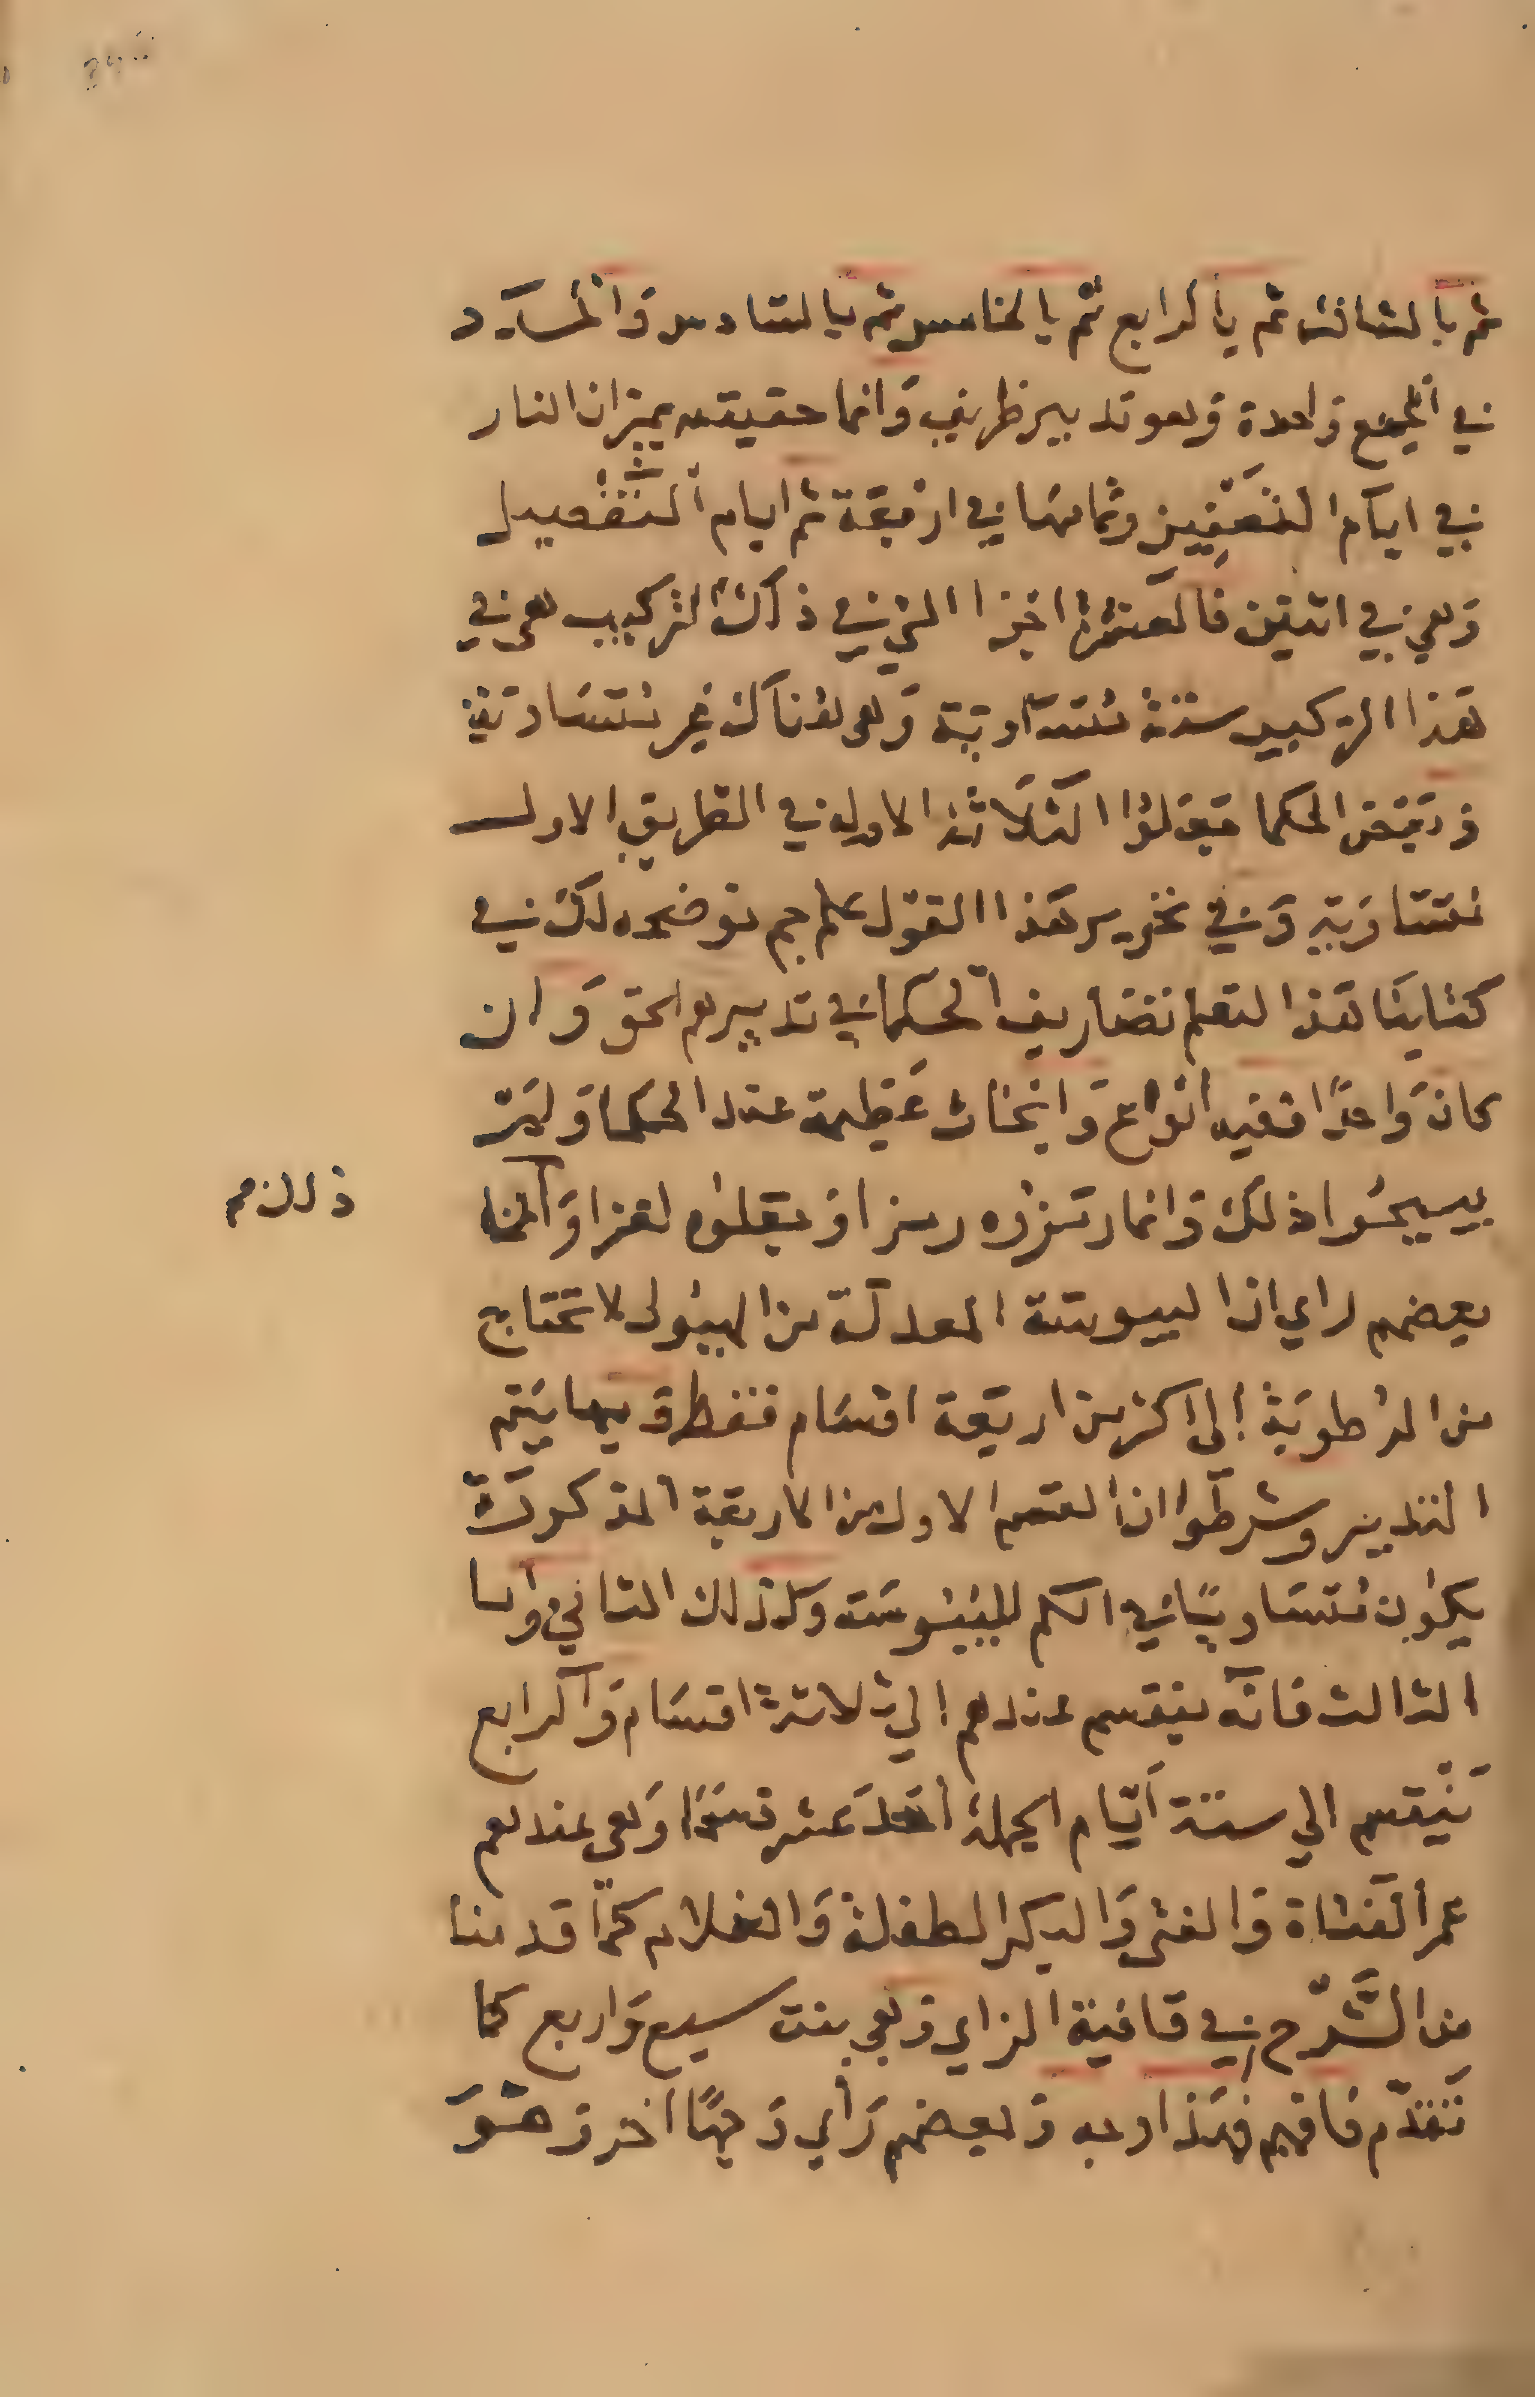 ثم بالثالث ثم بالرابع ثم بالخامس ثم بالسادس والمدد
في الجميع واحدة وهو تدبير ظريف وانما حقيقته بميزان النار
في ايام التعفين وتمامها في اربعة ثم ايام التفصيل
وهي في اثنين فالعشرة اجزا التي في ذلك التركيب هي في
هذا التركيب ستة متساوية وهي هناك غير متساوية
وبعض الحكما جعلوا الثلاثة الاول في الطريق الاول
متساوية وفي تحرير هذا القول علم جم نوضحه لك في
كتابنا هذا لتعلم تصاريف الحكما في تدبيرهم الحق وان
كان واحدا ففيه انواع وابحاث عظيمة عند الحكما ولم
يبيحوا ذلك وانما رمزوه رمزا وجعلوه لغزا وانما
ذلك م
بعضهم راي ان اليبوسة المعدلة من الهيولى لا تحتاج
من الرطوبة الى اكثر من اربعة اقسام فقط وبها يتم
التدبير وشرطوا ان القسم الاول من الاربعة المذكورة
يكون متساويا في الكم لليبوسة وكذلك الثاني واما
الثالث فانه ينقسم عندهم الي ثلاثة اقسام والرابع
ينقسم الي ستة ايام الجملة احد عشر قسما وهي عندهم
عمر الفتاة والفتى والبكر الطفلة والغلام كما قدمنا
من الشرح في قافية الزاي وهي بنت سبع واربع كما
تقدم فافهم فهذا وجه وبعضهم راي وجها اخر وهو